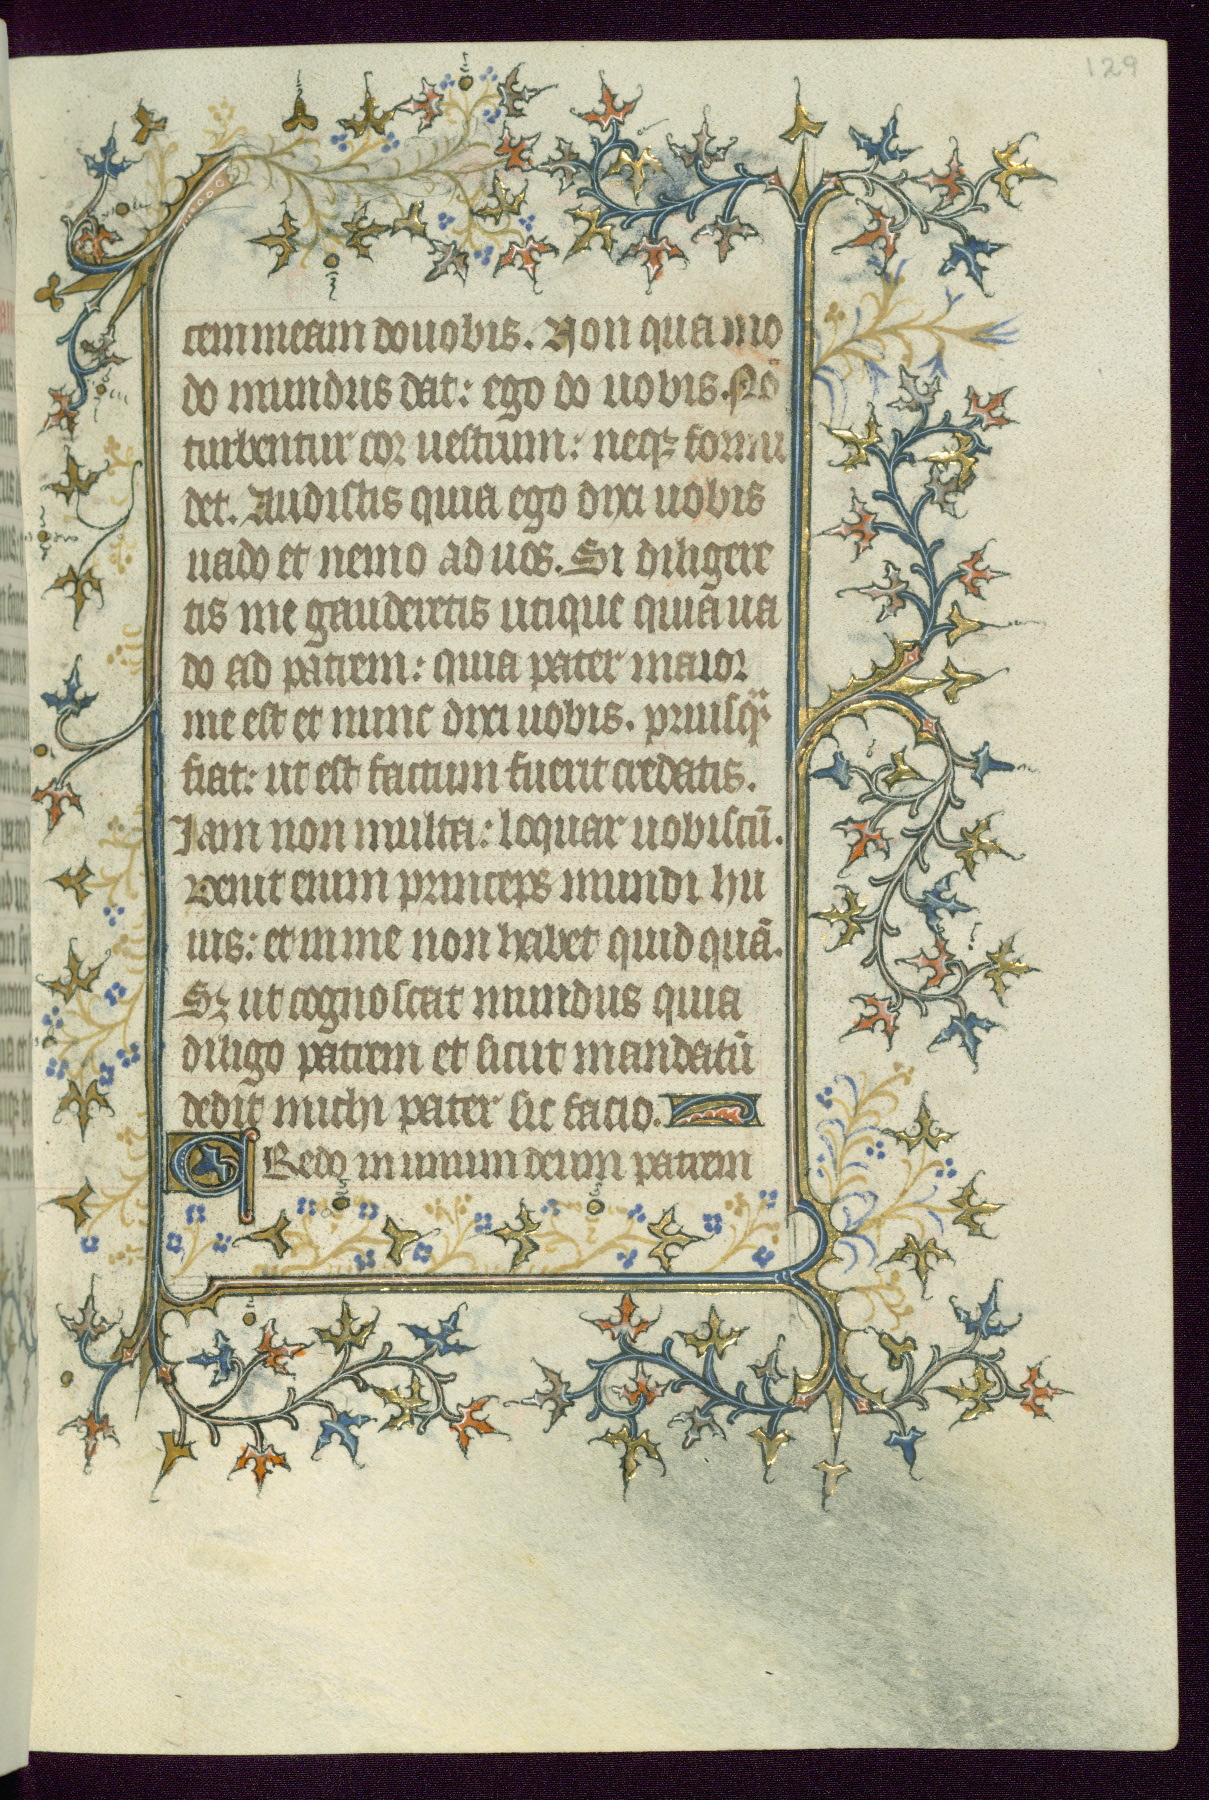 129
cem meam do uobis. Non quamo
do mundus dat: ego do uobis. Nō
turbentur cor uestrum: neqꝫ formi
det. Audistis quia ego dixi uobis
uado et nenio ad uos. Si diligere
tis me gauderetis utique quiā ua
do ad patrem: quia pater maior
me est et nunc dixi uobis. priusqᷓ
fiat: ut est factum fuerit credatis.
Iam non multa: loquar uobiscū.
Venit enim princeps mundi hu
ius: et in me non habet quidquā.
Sꝫ ut cognoscat mundus quia
diligo patrem et sicut mandatū
dedit michi pater sic facio.
CRedo in unum deum patrem